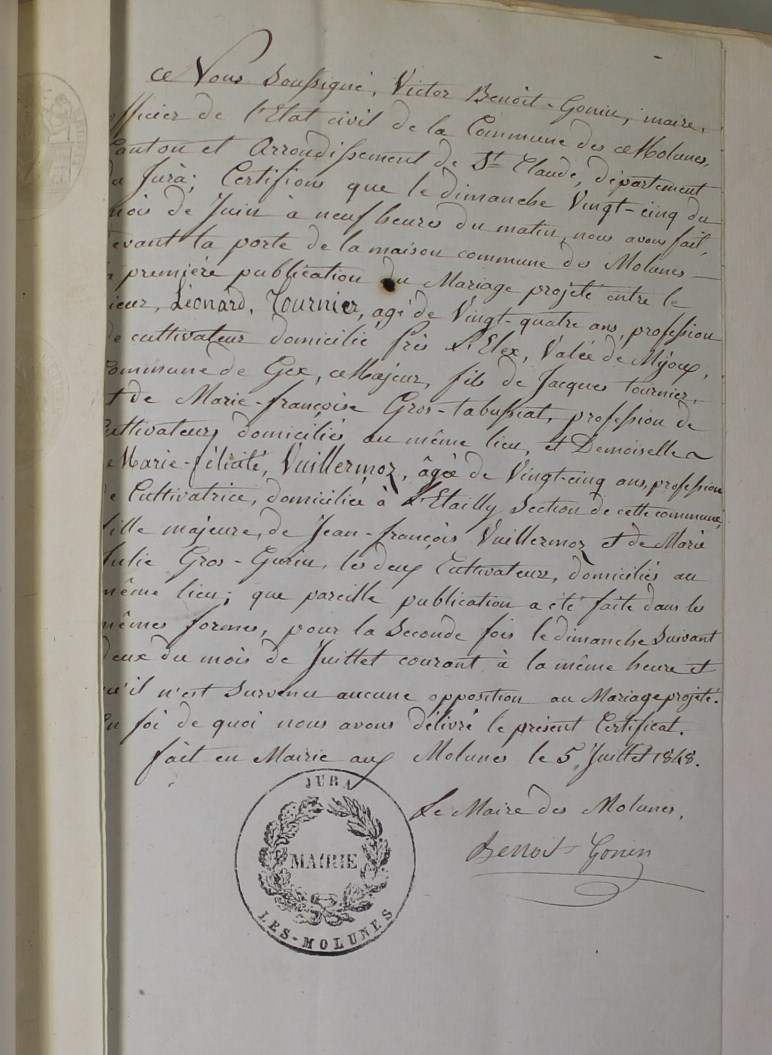 Nous soussigné, Victor Benoit-Gonin, maire,
officier de l'Etat civil de la Commune des Molunes,
Canton et Arrondissement de St Claude, département
du Jura; Certifions que le dimanche Vingt-cinq du
mois de Juin à neuf heures du matin, nous avons fait,
devant la porte de la maison commune des Molunes —
la première publication du Mariage projeté entre le
sieur, Léonard, Tournier, agé de Vingt-quatre ans, profession
de cultivateur domicilié près L'Elex, Valée de Mijoux,
Commune de Gex, Majeur, fils de Jacques tournier,
et de Marie-françoise Gros-tabussiat, profession de
Cultivateurs domiciliés au même lieu, et Demoiselle
Marie-félicité, Vuillermoz, âgée de Vingt-cinq ans, profession
de Cultivatrice, domiciliée à L'Etailly Section de cette commune,
fille majeure, de Jean-françois Vuillermoz et de Marie
Julie Gros-Gurin, les deux Cultivateurs, domiciliés au
même lieu; que pareille publication a été faite dans les
mêmes formes, pour la Seconde fois le dimanche Suivant
deux du mois de Juillet courant à la même heure et
qu'il n'est Survenu aucune opposition au Mariage projeté.
En foi de quoi nous avons délivré le présent Certificat.
fait en Mairie aux Molunes le 5 Juillet 1848.
Le Maire des Molunes,
Benoit-Gonin
JURA
MAIRIE
LES-MOLUNES